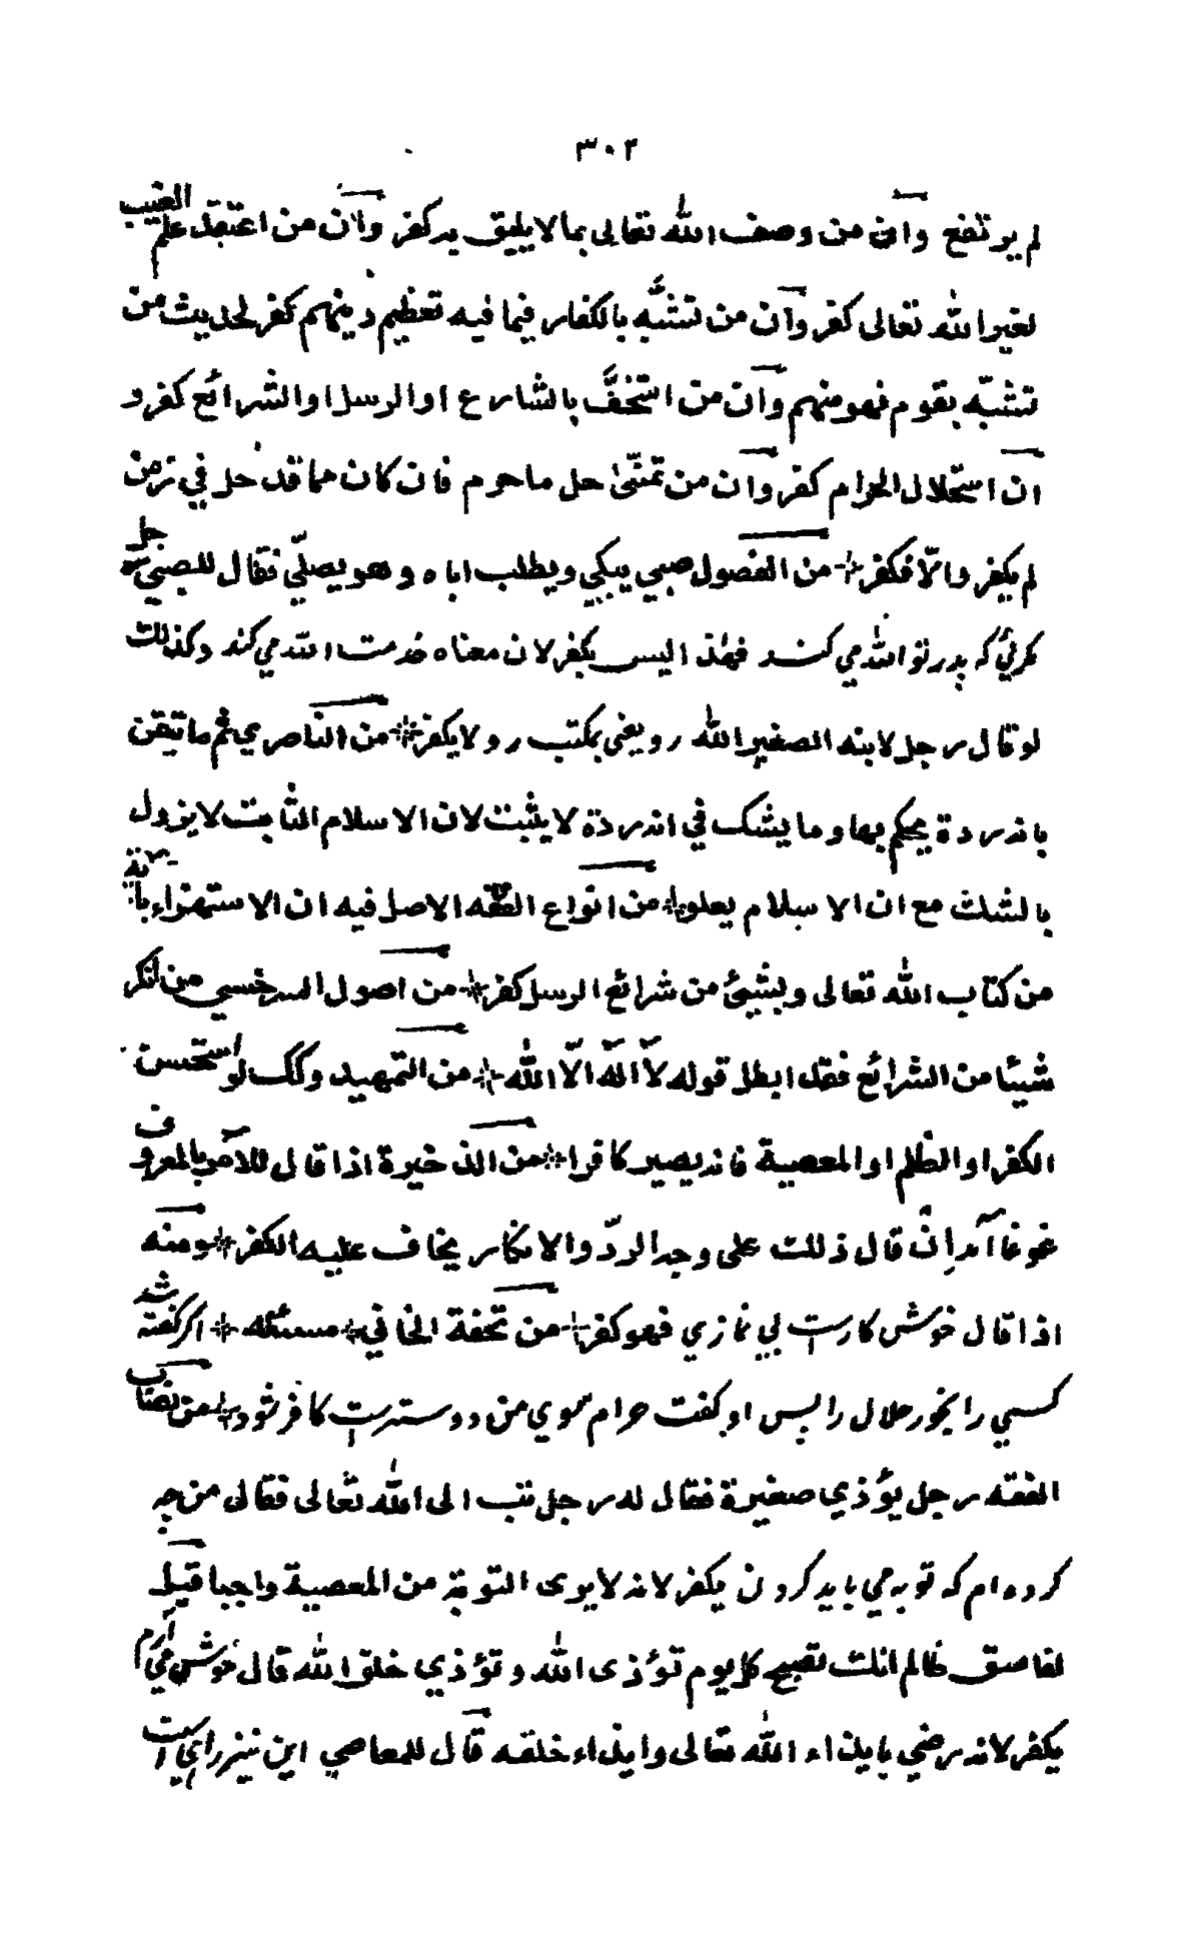 ٣٠٢
لم يرتفع وان من وصف الله تعالى بما لا يليق به كفر وان من اعتقد علم الغيب
لغير الله تعالى كفر وان من تشبّه بالكفار فيما فيه تعظيم دينهم كفر لحديث من
تشبّه بقوم فهو منهم وان من استخفّ بالشارع او الرسل او الشرائع كفر و
ان استحلال الحرام كفر وان من تمنّى حل ما حرم فان كان مما قد حل في زمن
لم يكفر والّا فكفر من الفصول صبي يبكي ويطلب اباه وهو يصلّي فقال للصبي رجل
مگرئ كه پدر تو الله مي كند فهذا ليس بكفر لان معناه خدمت الله مي كند وكذلك
لو قال رجل لابنه الصغير الله رو يعني بمكتب رو لا يكفر من الناصري ثم ما تيقن
بانه ردة يحكم بها وما يشك في انه ردة لا يثبت لان الاسلام الثابت لا يزول
بالشك مع ان الاسلام يعلو من انواع الفقه الاصل فيه ان الاستهزاء بآية
من كتاب الله تعالى وبشيئ من شرائع الرسل كفر من اصول السرخسي من انكر
شيئا من الشرائع فقد ابطل قوله لا اله الّا الله من التمهيد وكك لو استحسن
الكفر او الظلم او المعصية فانه يصير كافرا من الذخيرة اذا قال للآمر بالمعروف
غوغا آمد ان قال ذلك على وجه الردّ والانكار يخاف عليه الكفر ومنه
اذا قال خوش كارست بي نمازي فهو كفر من تحفة الخاني مسئله اگر گفته شد
كسي را بخور حلال را پس او گفت حرام سوي من دوسترست كافر شود من نصاب
الفقه رجل يؤذي صغيرة فقال له رجل تب الى الله تعالى فقال من چه
كرده ام كه توبه مي بايد كردن يكفر لانه لا يرى التوبة من المعصية واجبا قيل
لفاسق ظالم انك تصبح كل يوم تؤذى الله وتؤذي خلق الله قال خوش مي آرم
يكفر لانه رضي بايذاء الله تعالى وايذاء خلقه قال للمعاصي اين نيز راهي است